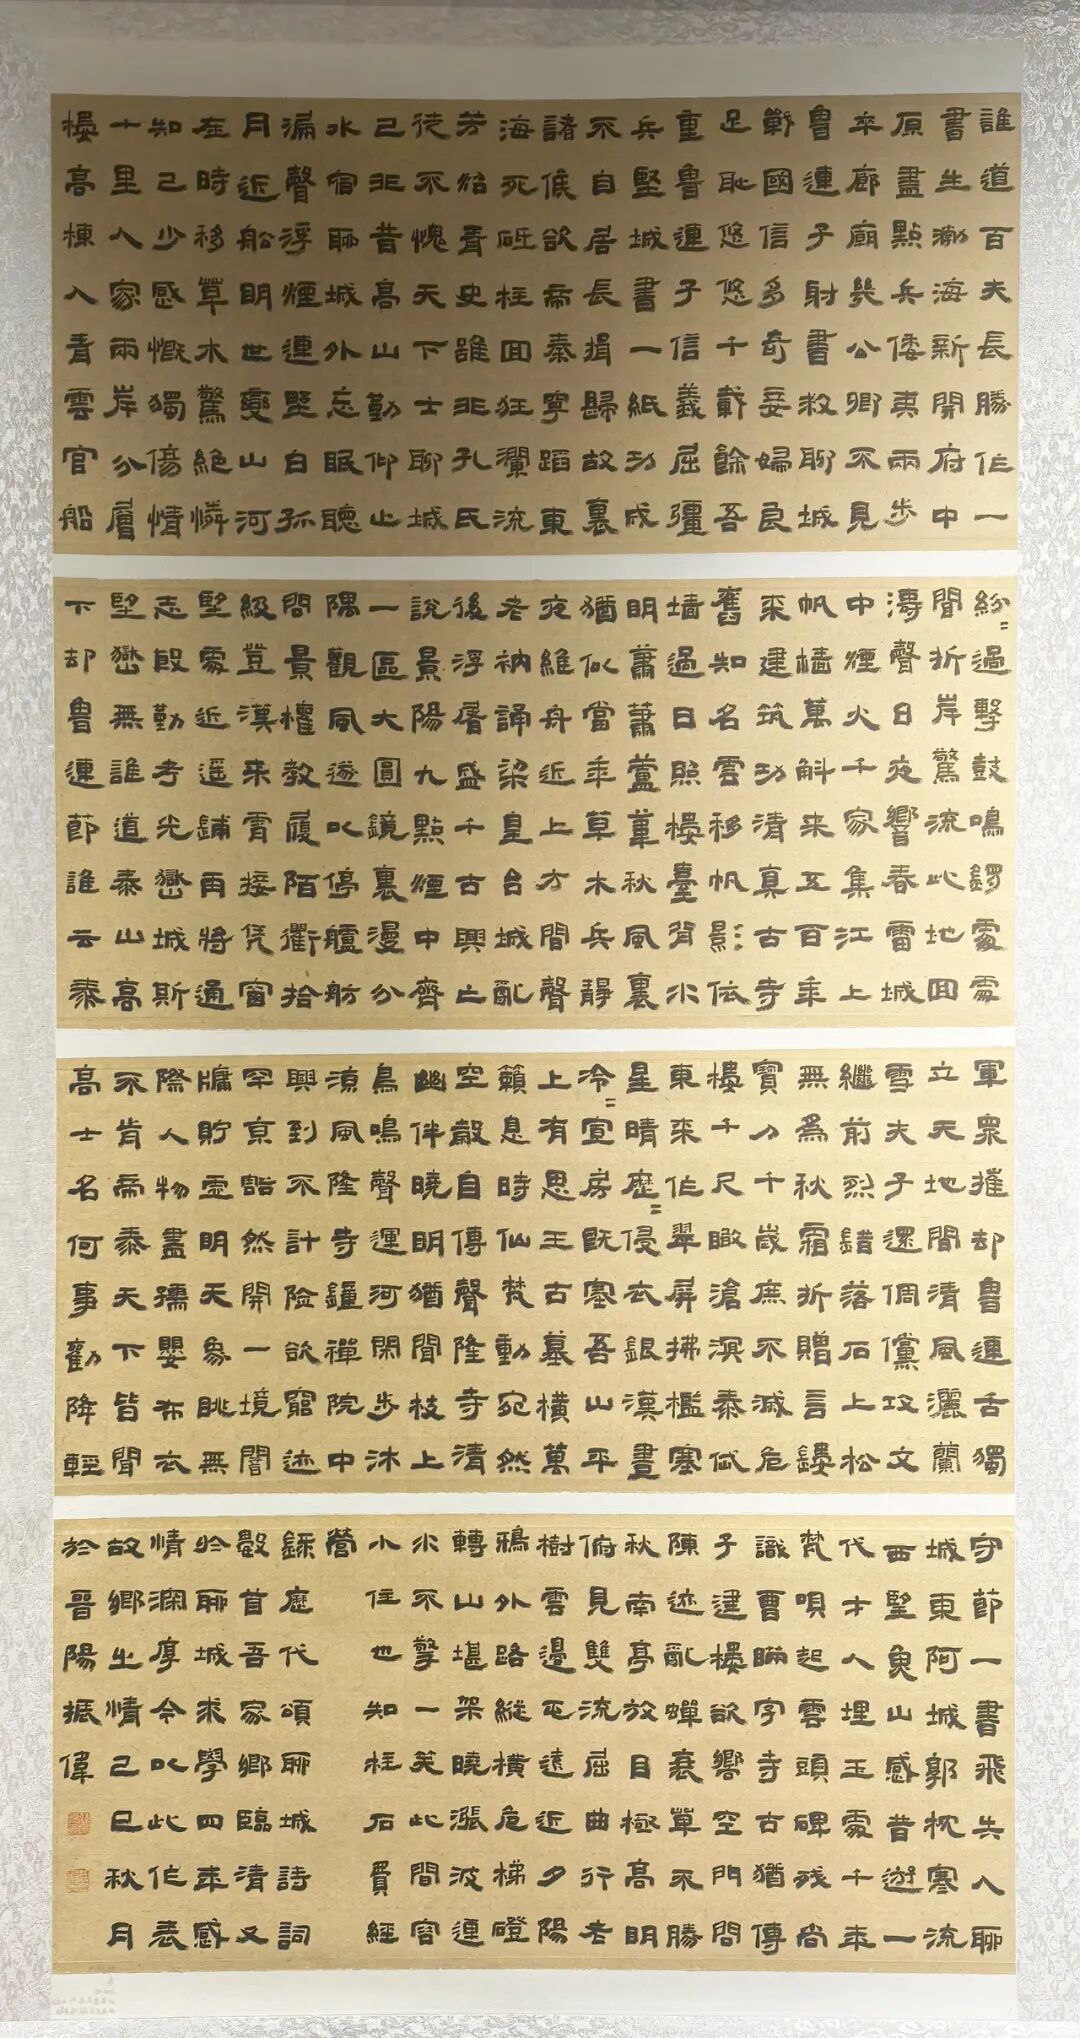 誰道百夫長勝作一
書生瀚海新開府中
原盡點兵倭夷兩步
卒廊廟幾公卿不見
魯連子射書救聊城
戰國信多奇妾婦良
足恥悠悠千載餘吾
重魯連子信義屈彊
兵堅城書一紙功成
不自居長揖歸故裏
諸侯欲帝秦寧蹈東
海死砥柱回狂瀾流
芳紹青史誰非孔氏
徒不愧天下士聊城
己非昔高山勤仰止
水宿聊城外忘眠聽
漏聲浮煙連野白孤
月近船明世變山河
在時移草木驚絕憐
知己少感慨獨傷情
十里人家兩岸分層
樓高棟入青雲官船
紛〻過擊鼓鳴鑼處處
聞折岸驚流此地回
濤聲日夜響春雷城
中煙火千家集江上
帆檣萬斛來五百年
來建筑功清真古寺
舊知名雲移帆影依
墻過日照樓臺背水
明蕭蕭蘆葦秋風裏
猶似當年草木兵靜
夜維舟近上方間聲
老衲誦梁皇台城亂
後浮屠盛千古興亡
說景陽九點煙中齊
一區大圓鏡裏漫分
隅觀風遂以停艫舫
問景權教履陌衢拾
級登漢來霄接凭窗
望處近遥鋪再將通
志殷勤考光嶽城斯
望嶽無誰道泰山高
下却魯連節誰云秦
軍眾摧却魯連舌獨
立天地間清風灑蘭
雪夫子還倜儻攻文
繼前烈錯落石上松
無為秋霜折贈言鏤
寶刀千歲庶不滅危
樓千尺瞰滄溟泰岱
東來作翠屏拂檻塞
星晴歷〻侵衣銀漢晝
冷〻宣房既塞吾山平
上有思王古墓橫萬
籟息時仙梵動宛然
空巖自傳聲隆寺清
幽伴曉明猶聞枝上
鳥鳴聲運河閑步沐
涼風隆寺鐘禪院中
興到不計險欲窮迹
罕京豁然開一境闇
牖貯靈明天象眺無
際人物盡孺嬰布衣
不肯帝秦天下皆聞
高士名何事勸降輕
守節一書飛失入聊
城東阿城郭枕寒流
西望魚山感昔遊一
代才人埋玉處千年
梵唄起雲頭碑殘尚
識曹瞞字寺古猶傳
子建樓欲嚮空門問
陳迹亂蟬衰草不勝
秋南亭放目極高明
俯見雙流屈曲行老
樹雲邊正遠近夕陽
鴉外路縱橫危梯磴
轉山堪架曉漲波連
水不擎一笑此間容
小住也知柱石費經
營
錄歷代頌聊城詩詞
數首吾家鄉臨清又
於聊城求學四年感
情深厚今以此作表
故鄉之情己巳秋月
於晉陽振偉